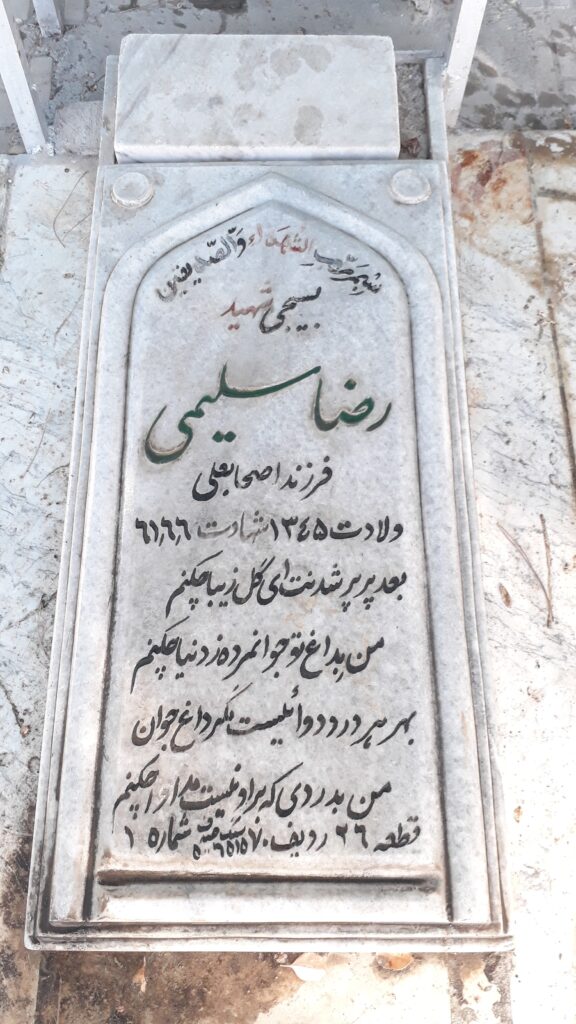 بسم رب الشهداء والصدیقین
بسیجی شهید
رضا سلیمی
فرزند اصحابعلی
ولادت ۱۳۴۵ شهادت ۶۱٫۶٫۶
بعد پرپر شدنت ای گل زیبا چکنم
من بداغ تو جوانمرده ز دنیا چکنم
بهر هر درد دوائیست مگر داغ جوان
من بدردی که براو نیست مداوا چکنم
قطعه ۲۶ ردیف ۷۰ شماره ۱